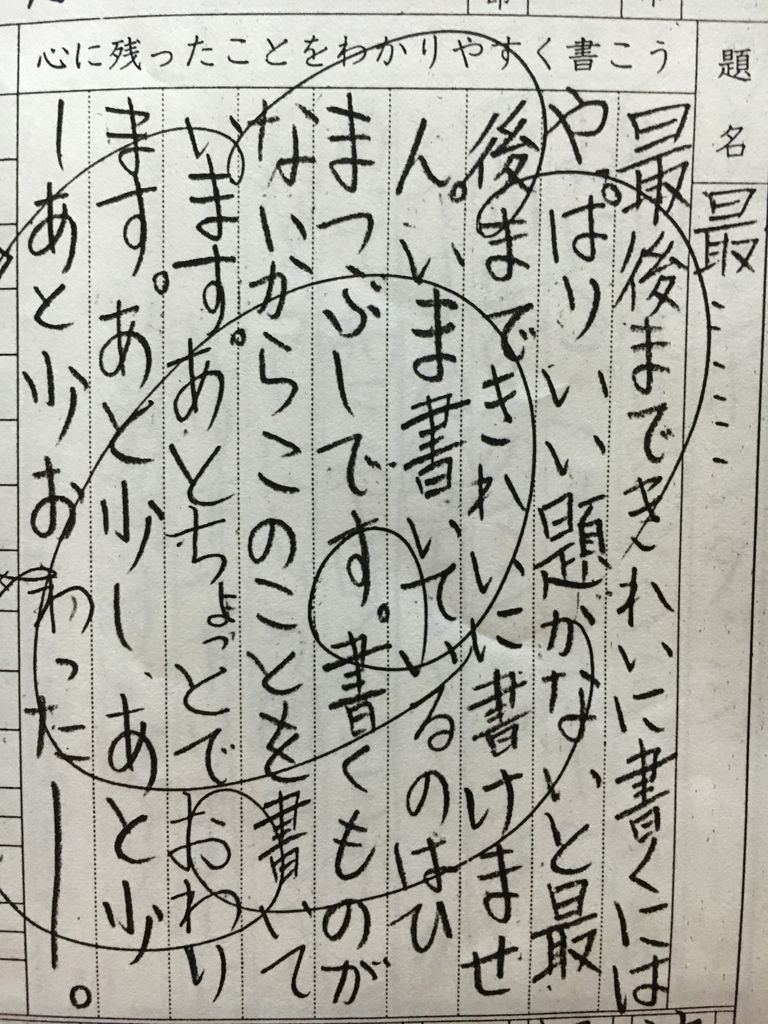 心に残ったことをわかりやすく書こう
題名
最……
最後まできれいに書くには
やぱりいい題かないと最
後まできれいに書けませ
ん。いま書いているのはひ
まつぶしです。書くものが
ないからこのことを書いて
います。あとちょっとでおわり
ます。あと少し、あと少
しあと少おわったー。